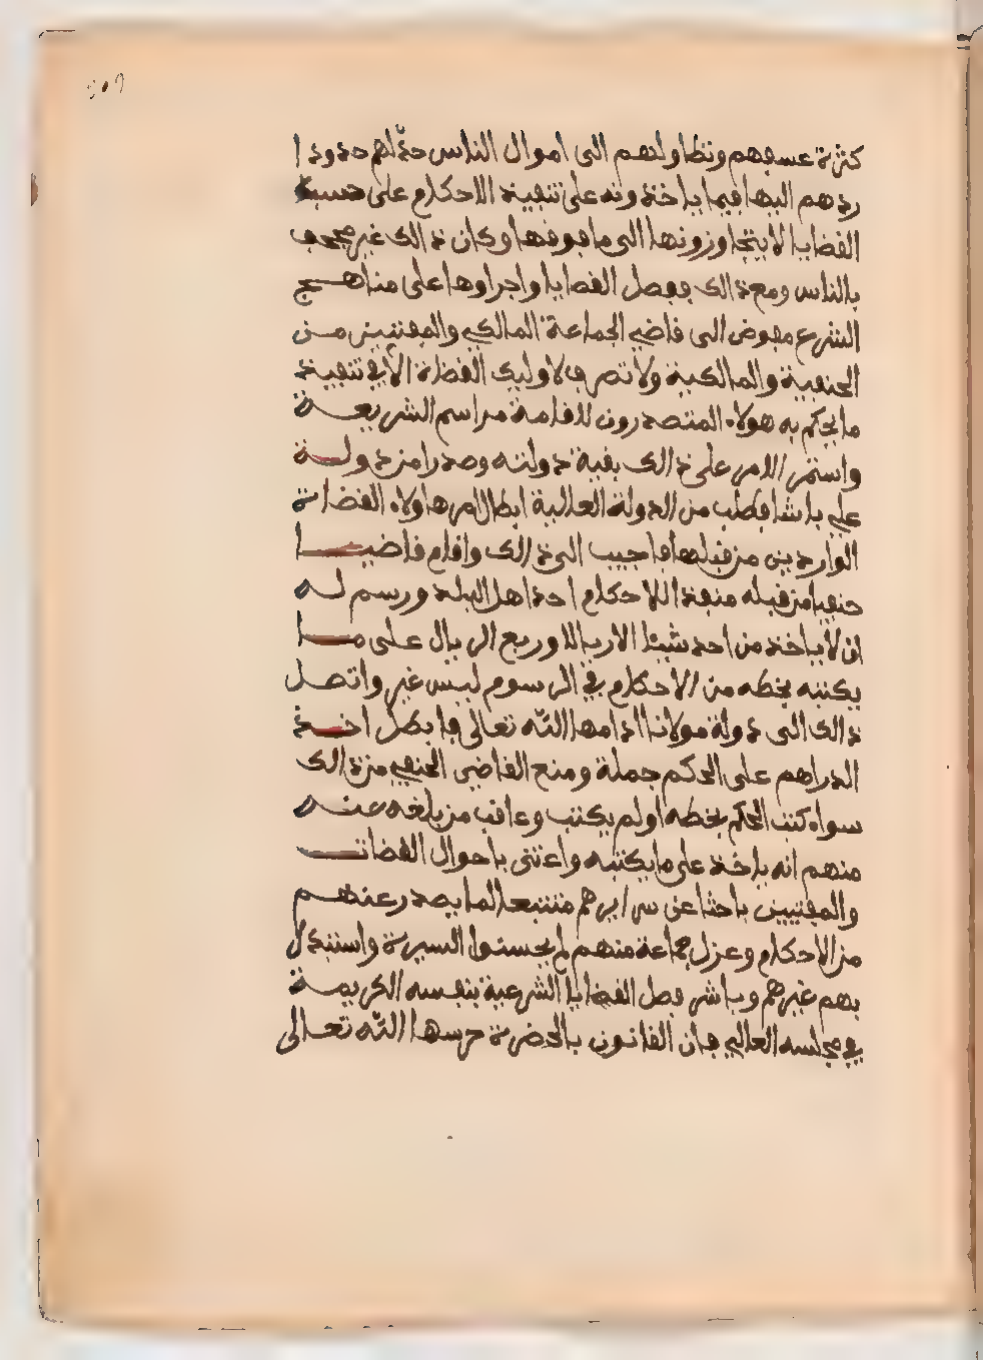 كثرة عسفهم وتطاولهم الى اموال الناس حدّ لهم حدودا
ردهم اليها فيما ياخذونه على تنفيذ الاحكام على حسب
القضايا لا يتجاوزونها الى ما فوقها وكان ذالك غير مجحف
بالناس ومع ذالك ففصل القضايا واجراوها على مناهج
الشرع مفوض الى قاضي الجماعة المالكي والمفتيين من
الحنفية والمالكية ولا تصرف لاوليك القضاة الا في تنفيذ
ما يحكم به هولاء المتصدرون لاقامة مراسم الشريعة
واستمر الامر على ذالك بقية دولته وصدرا من دولة
علي باشا فطلب من الدولة العالية ابطال امر هاولاء القضاة
الواردين من قبلها فاجيب الى ذالك واقام قاضيا
حنفيا من قبله منفذا للاحكام احد اهل البلد ورسم له
ان لا ياخذ من احد شيئا الا ريالا وربع الريال على ما
يكتبه بخطه من الاحكام في الرسوم ليس غير واتصل
ذالك الى دولة مولانا ادامها الله تعالى فابطل اخذ
الدراهم على الحكم جملة ومنع القاضي الحنفي من ذالك
سواء كتب الحكم بخطه او لم يكتب وعاقب من بلغه عنه
منهم انه ياخذ على ما يكتبه واعتنى باحوال القضات
والمفتيين باحثا عن سرايرهم متتبعا لما يصدر عنهم
من الاحكام وعزل جماعة منهم لم يحسنوا السيرة واستبدل
بهم غيرهم وباشر فصل القضايا الشرعية بنفسه الكريمة
في مجلسه العالي فان القانون بالحضرة حرسها الله تعالى